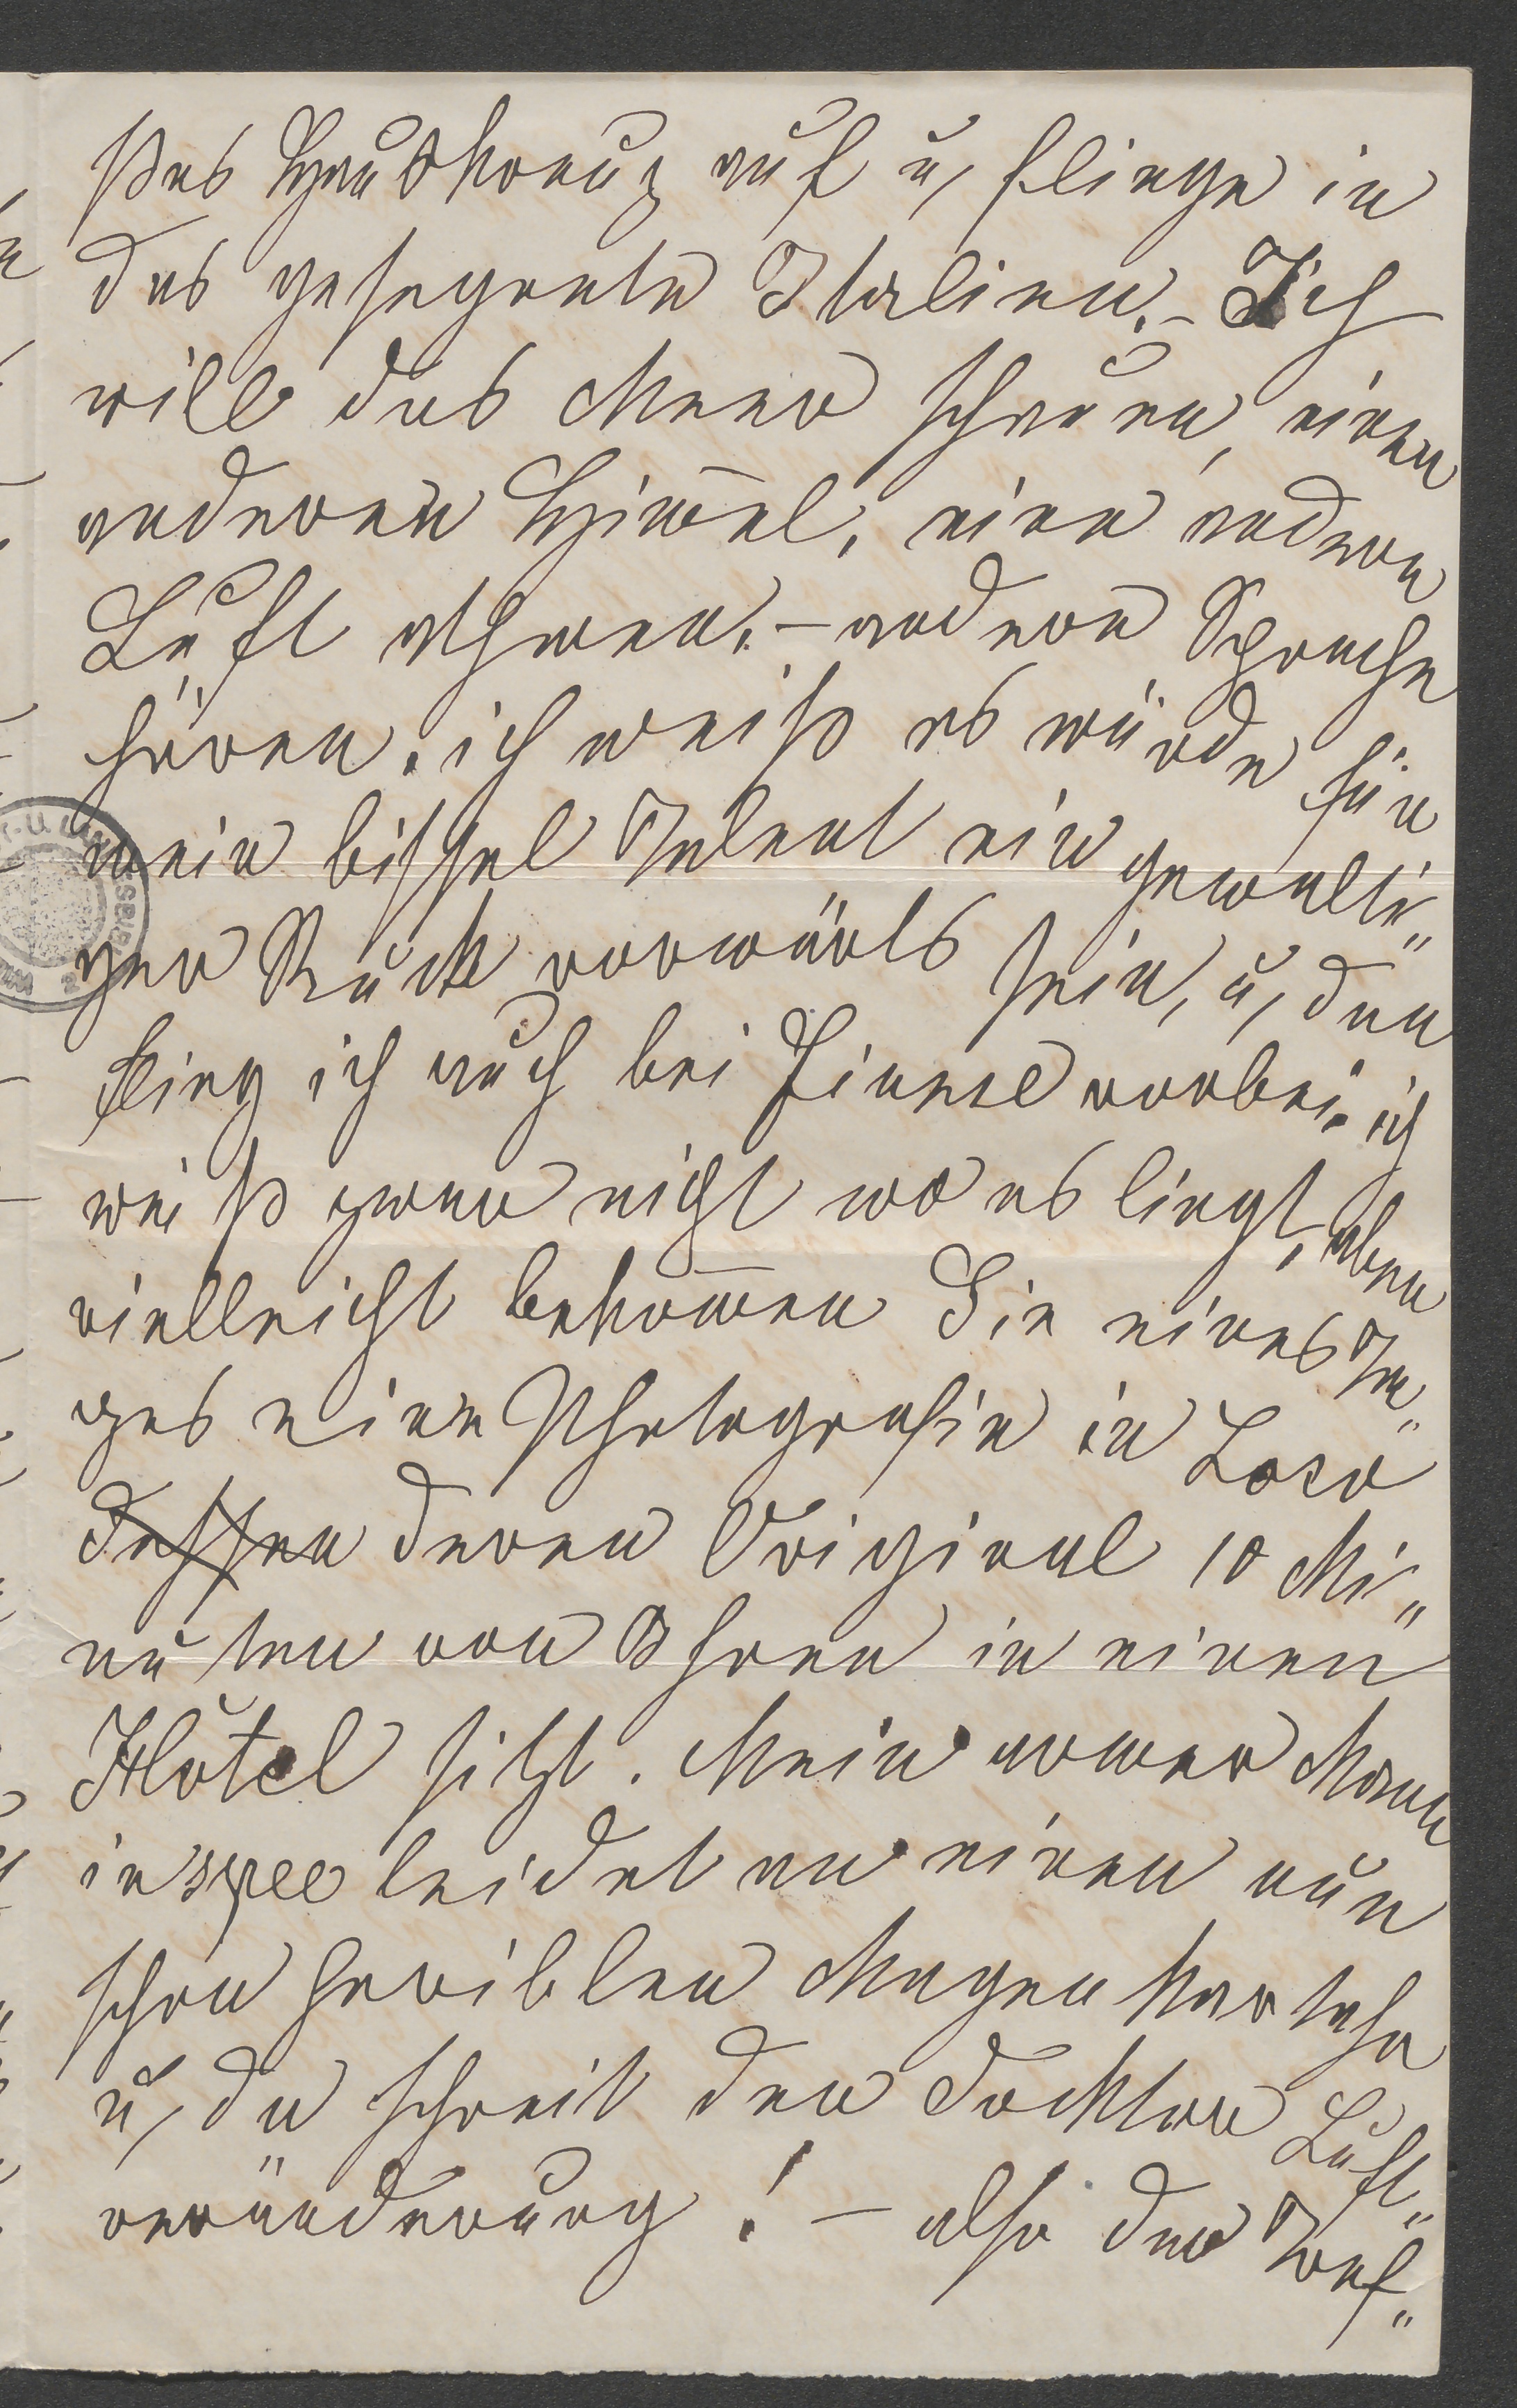 ßes Hauskreuz auf u, fliege in
das gesegnete Italien. – Ich
will das Meer schauen, einen
anderen Himmel, eine andere
Luft athmen. – andere Sprache
hören. ich weiß es würde für
mein bissel Talent ein gewalti„
ger Ruck vorwärts sein, u, dan
flieg ich auch bei Fiume vorbei. ich
weiß zwar nicht wo es liegt, aber
vielleicht bekom̄en Sie eines Ta„
ges eine Photografie in Loco
dessen deren Original 10 Mi„
nuten von Ihnen in einen
Hôtel sitzt. Mein armer Mann
in spee leidet an einen nun
schon heriblen Magen
u, da schreit der Docktor Luft„
veränderung! – also der